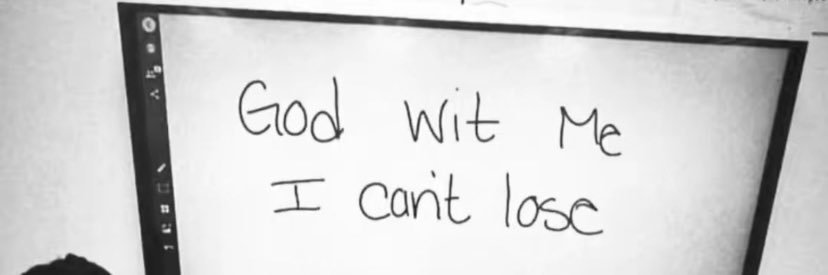 God Wit Me
I can't lose